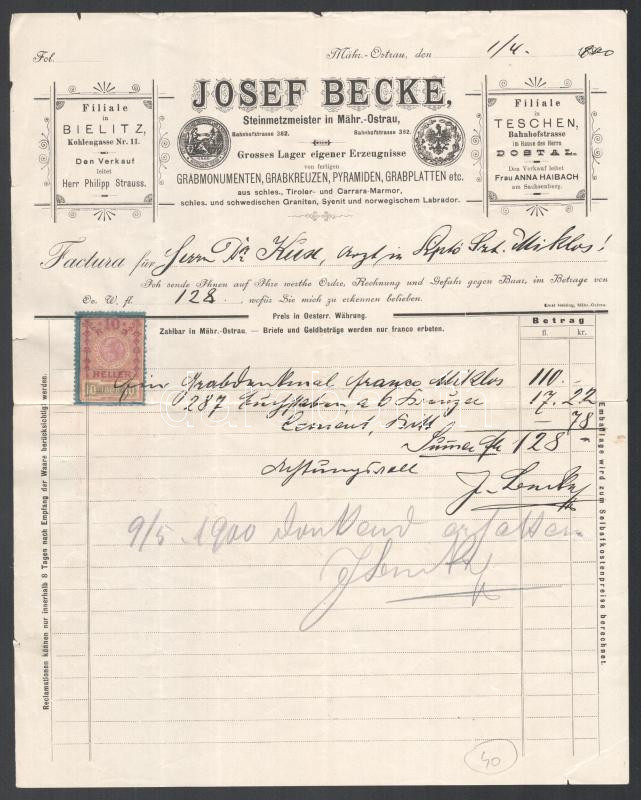 Fol.
Mähr.-Ostrau, den 1/4. 1900
JOSEF BECKE,
Steinmetzmeister in Mähr.-Ostrau,
Bahnhofstrasse 382. Bahnhofstrasse 382.
Grosses Lager eigener Erzeugnisse
von fertigen
GRABMONUMENTEN, GRABKREUZEN, PYRAMIDEN, GRABPLATTEN etc.
aus schles., Tiroler- und Carrara-Marmor,
schles. und schwedischen Graniten, Syenit und norwegischem Labrador.
Filiale
in
BIELITZ,
Kohlengasse Nr. 11.
Den Verkauf
leitet
Herr Philipp Strauss.
Filiale
in
TESCHEN,
Bahnhofstrasse
im Hause des Herrn
DOSTAL.
Den Verkauf leitet
Frau ANNA HAIBACH
am Sachsenberg.
Factura für Herrn Dr. Arzt in Szt. Miklos!
Ich sende Ihnen auf Ihre werthe Ordre, Rechnung und Gefahr gegen Baar, im Betrage von
Oe. W. fl. 128. , wofür Sie mich zu erkennen belieben.
Ernst Helding, Mähr.-Ostrau.
Preis in Oesterr. Währung.
Zahlbar in Mähr.-Ostrau. — Briefe und Geldbeträge werden nur franco erbeten.
Betrag
fl. kr.
10
HELLER
Ein Grabdenkmal franco Miklos 110.–
287 Buchstaben, a 6 Kreuzer 17.22
Cement, Kitt — 78
Summe fl. 128 –
Achtungsvoll
9/5 1900 dankend erhalten
Reclamationen können nur innerhalb 8 Tagen nach Empfang der Waare berücksichtigt werden.
Emballage wird zum Selbstkostenpreise berechnet.
40